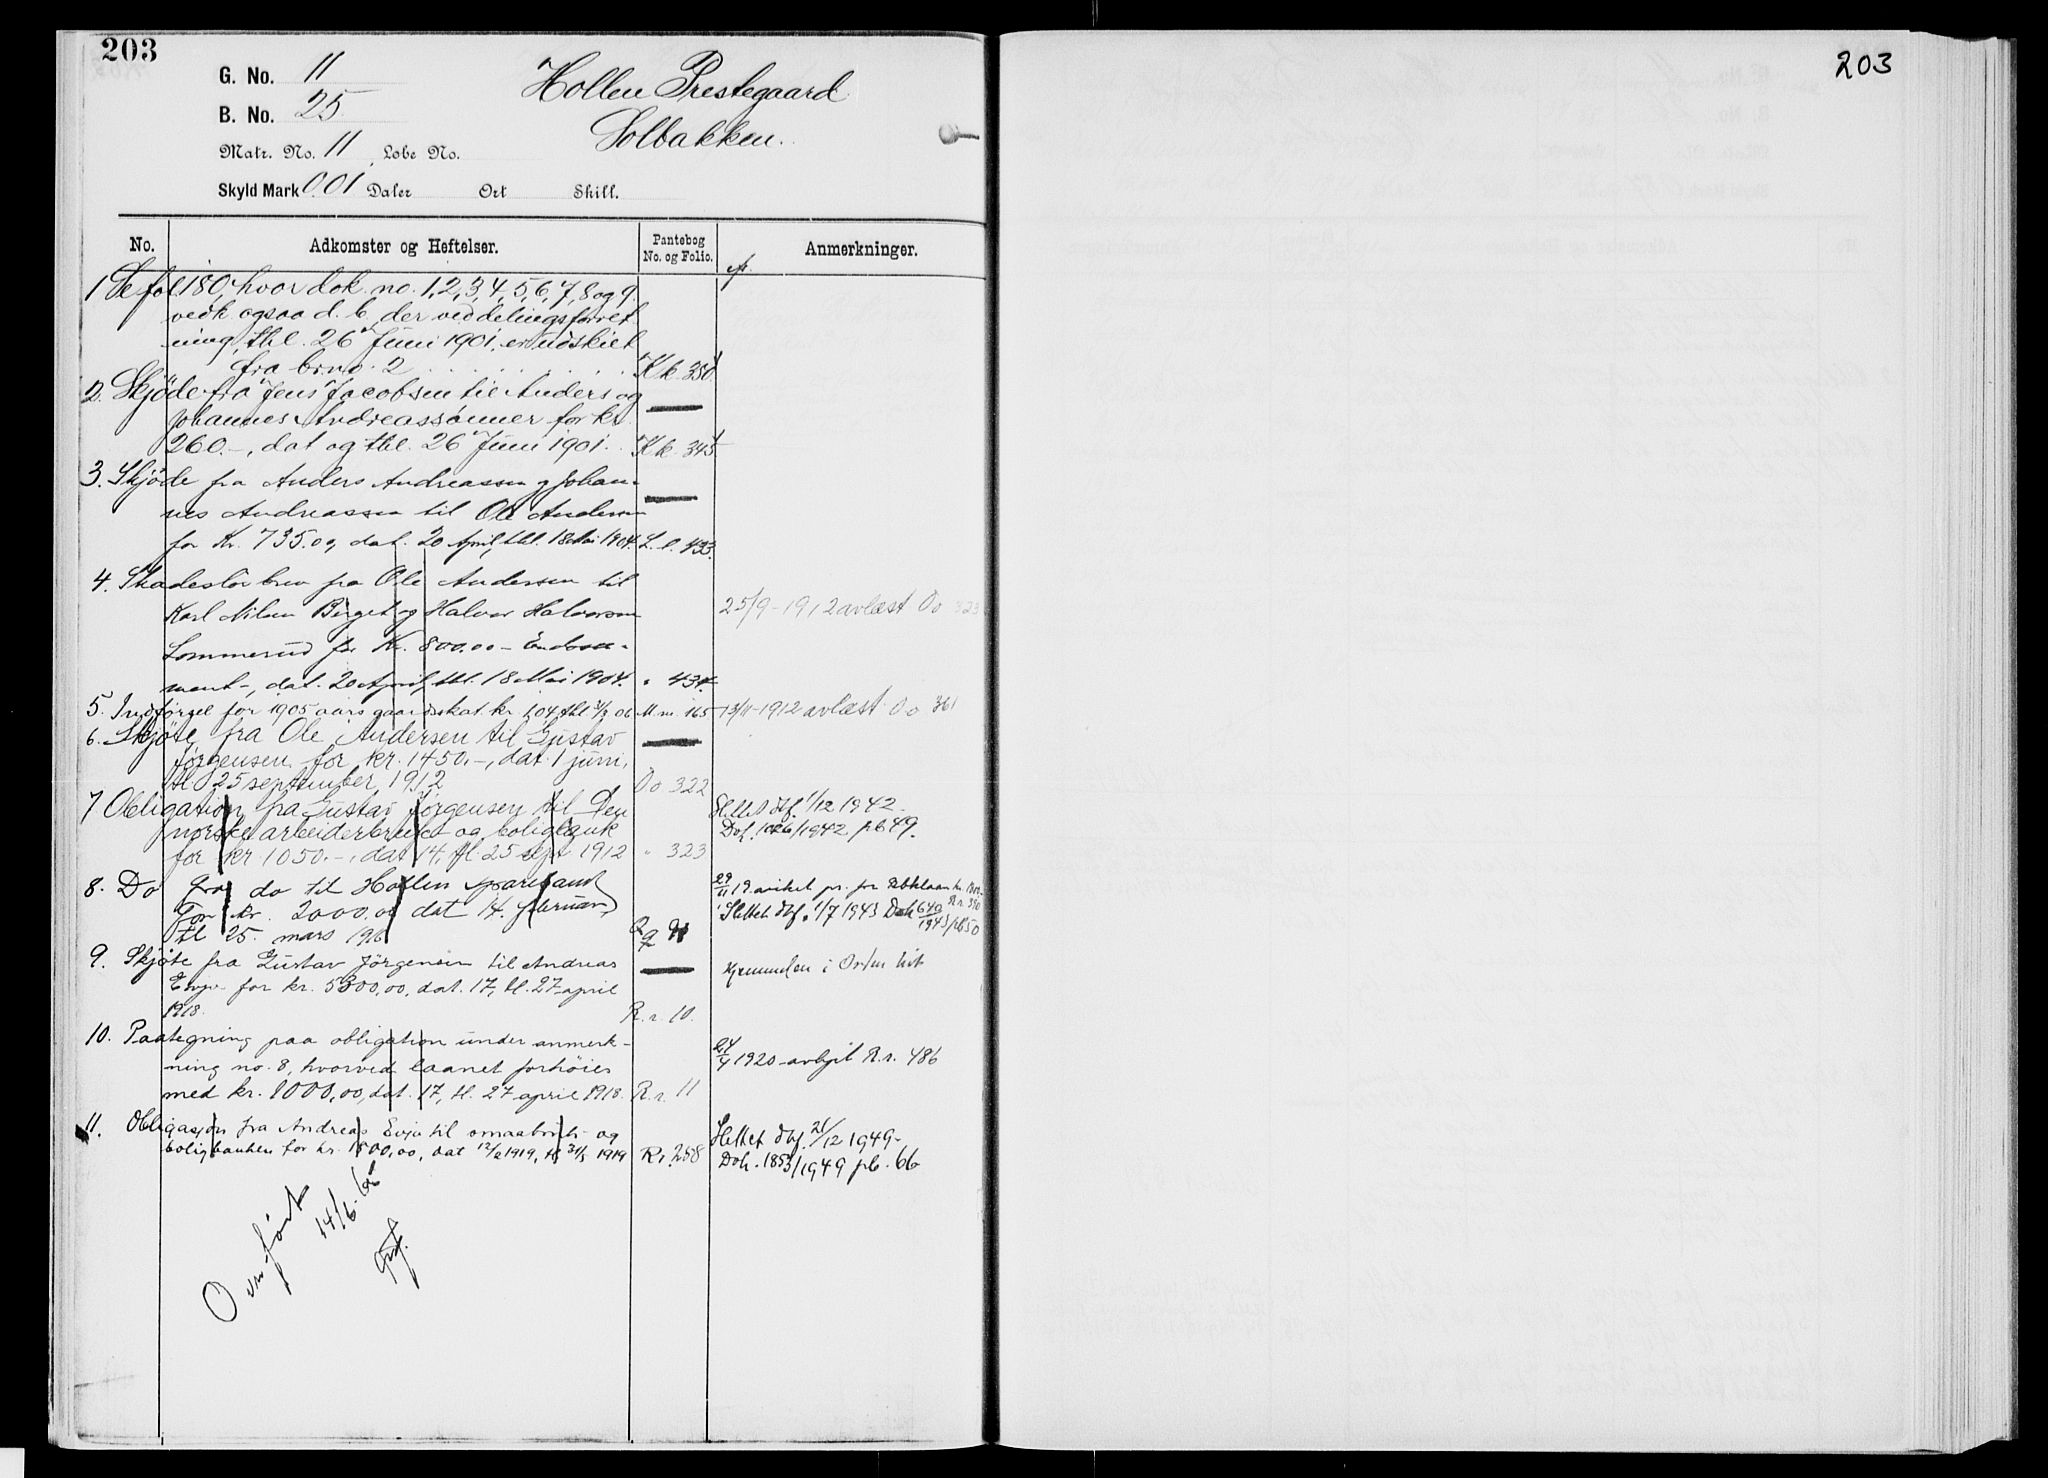 203
203
G. No. 11
B. No. 25
Matr. No. 11, Løbe No.
Skyld Mark 0.01 Daler Ort Skill.
Hollen Prestegaard
Solbakken.
No.
Adkomster og Heftelser.
Pantebog No. og Folio.
Anmerkninger.
1 Se fol 180, hvor dok. no. 1, 2, 3, 4, 5, 6, 7, 8 og 9.
vedk ogsaa d. b. der ved delingsforret
ning, thl. 26 Juni 1901, er udskilt
fra br.no. 2 . . . . . . K k 350
2. Skjøde fra Jens Jacobsen til Anders og
Johannes Andreassønner for kr.
260.-, dat og thl. 26 Juni 1901. K k 345
3. Skjøde fra Anders Andreassen og Johan-
nes Andreassen til Ole Andersen
for Kr. 735.00, dat. 20 April, thl. 18 Mai 1904. L. l. 433.
4. Skadesløsbrev fra Ole Andersen til
Karl Nilsen Berget og Halvor Halvorsen 25/9-1912 avlæst Oo 323
Lommerud for Kr. 800.00 - Endosse-
ment -, dat. 20 April, thl. 18 Mai 1904. " 434.
5. Indførsel for 1905 aars gaardsskat kr 1,04, thl 31/3 06 M m. 165 13/11-1912 avlæst Oo 361
6. Skjøte fra Ole Andersen til Gustav
Jørgensen for kr. 1450.-, dat. 1 juni,
tl. 25 september 1912 Oo 322
7 Obligation fra Gustav Jørgensen til Den Slettet iflg. 1/12 1942.
norske arbeiderbruk- og boligbank Dok. 1026/1942 pb 49.
for kr 1050.-, dat 14, tl. 25 sept 1912 " 323
8. Do fra do til Hollen sparebank 29/11 19 pr. for
For kr. 2000,00 dat 14. februar Slettet iflg. 1/7 1943 Dok 640/1943 pb 50
tl 25. mars 1916 Q q
9. Skjøte fra Gustav Jørgensen til Andreas
Evju for kr. 5300,00, dat. 17, tl. 27 april
1918. R. r. 10.
10. Paategning paa obligation under anmerk-
ning no. 8, hvorved laanet forhøies 24/4 1920 avlyst R. r. 486
med kr. 1000,00, dat. 17, tl. 27 april 1918. R. r. 11
11. Obligasjon fra Andreas Evju til smaabruk- og Slettet iflg. 21/12 1949.
boligbanken for kr. 1500,00, dat 12/2 1919, tl 31/5 1919 R r. 258 Dok. 1853/1949 pb. 66
Overført
14/6. 66